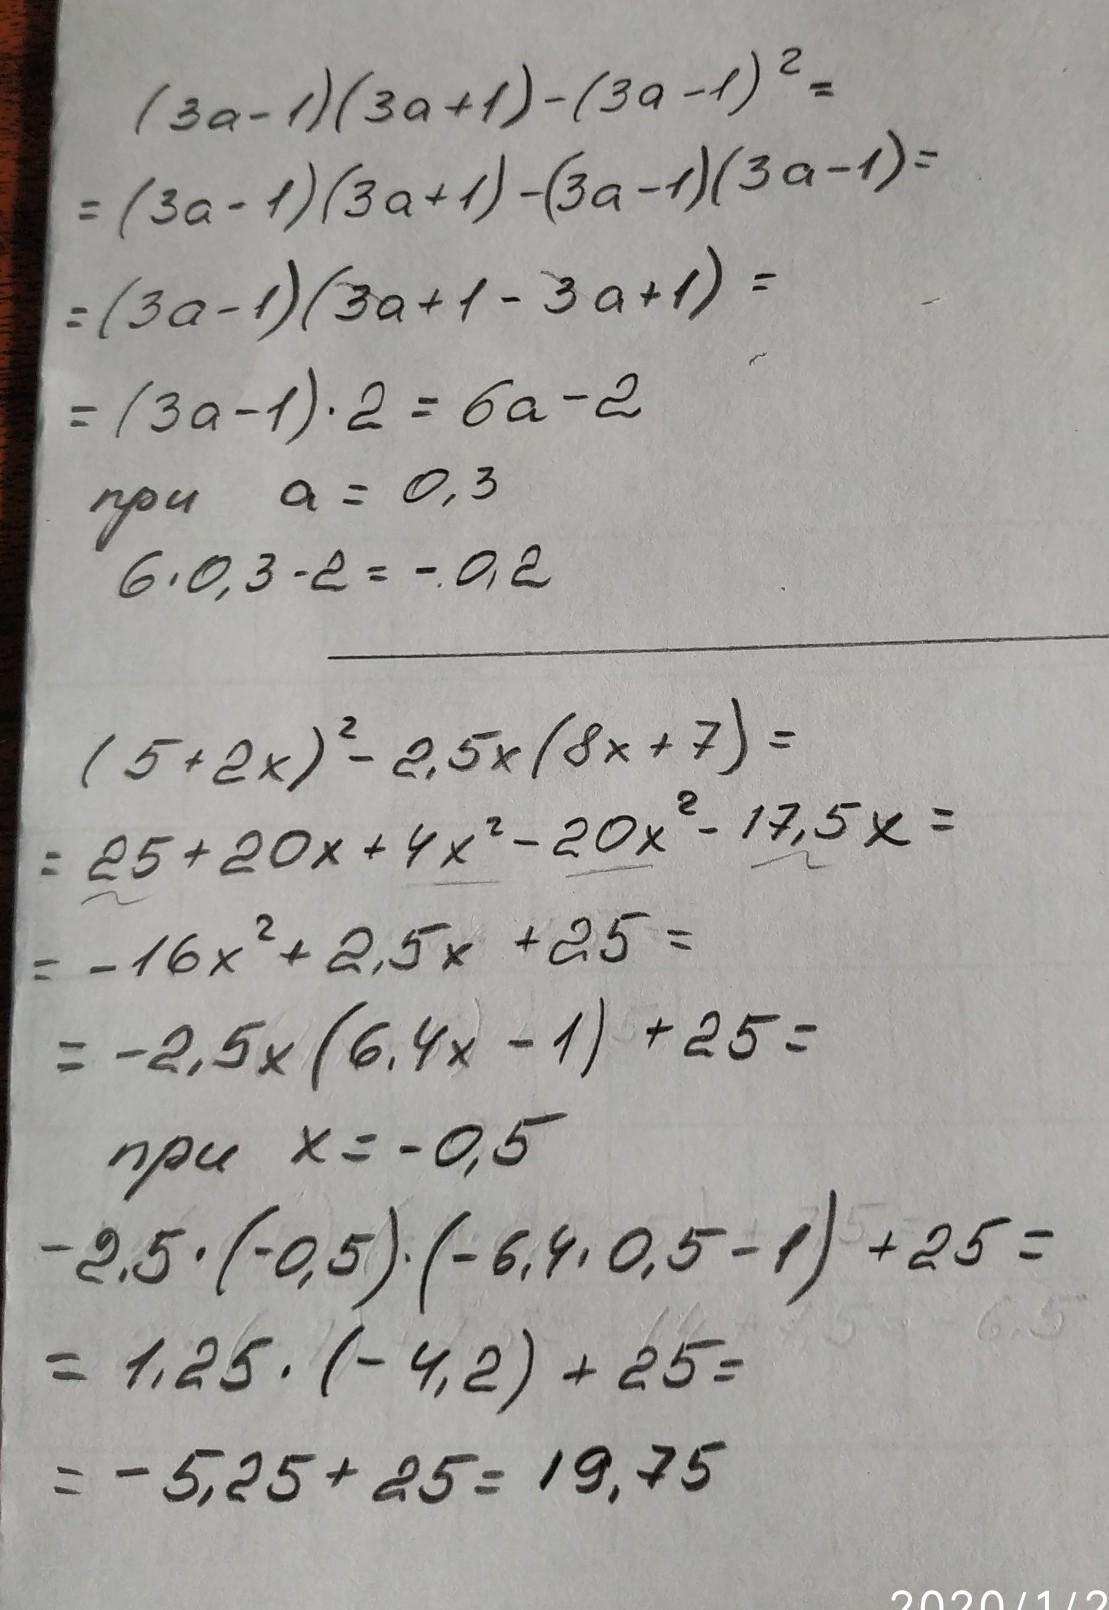 (3a-1)(3a+1)-(3a-1)²=
=(3a-1)(3a+1)-(3a-1)(3a-1)=
=(3a-1)(3a+1-3a+1)=
=(3a-1)·2=6a-2
при a=0,3
6·0,3-2=-0,2
(5+2x)²-2,5x(8x+7)=
=25+20x+4x²-20x²-17,5x=
=-16x²+2,5x+25=
=-2,5x(6,4x-1)+25=
при x=-0,5
-2,5·(-0,5)·(-6,4·0,5-1)+25=
=1,25·(-4,2)+25=
=-5,25+25=19,75